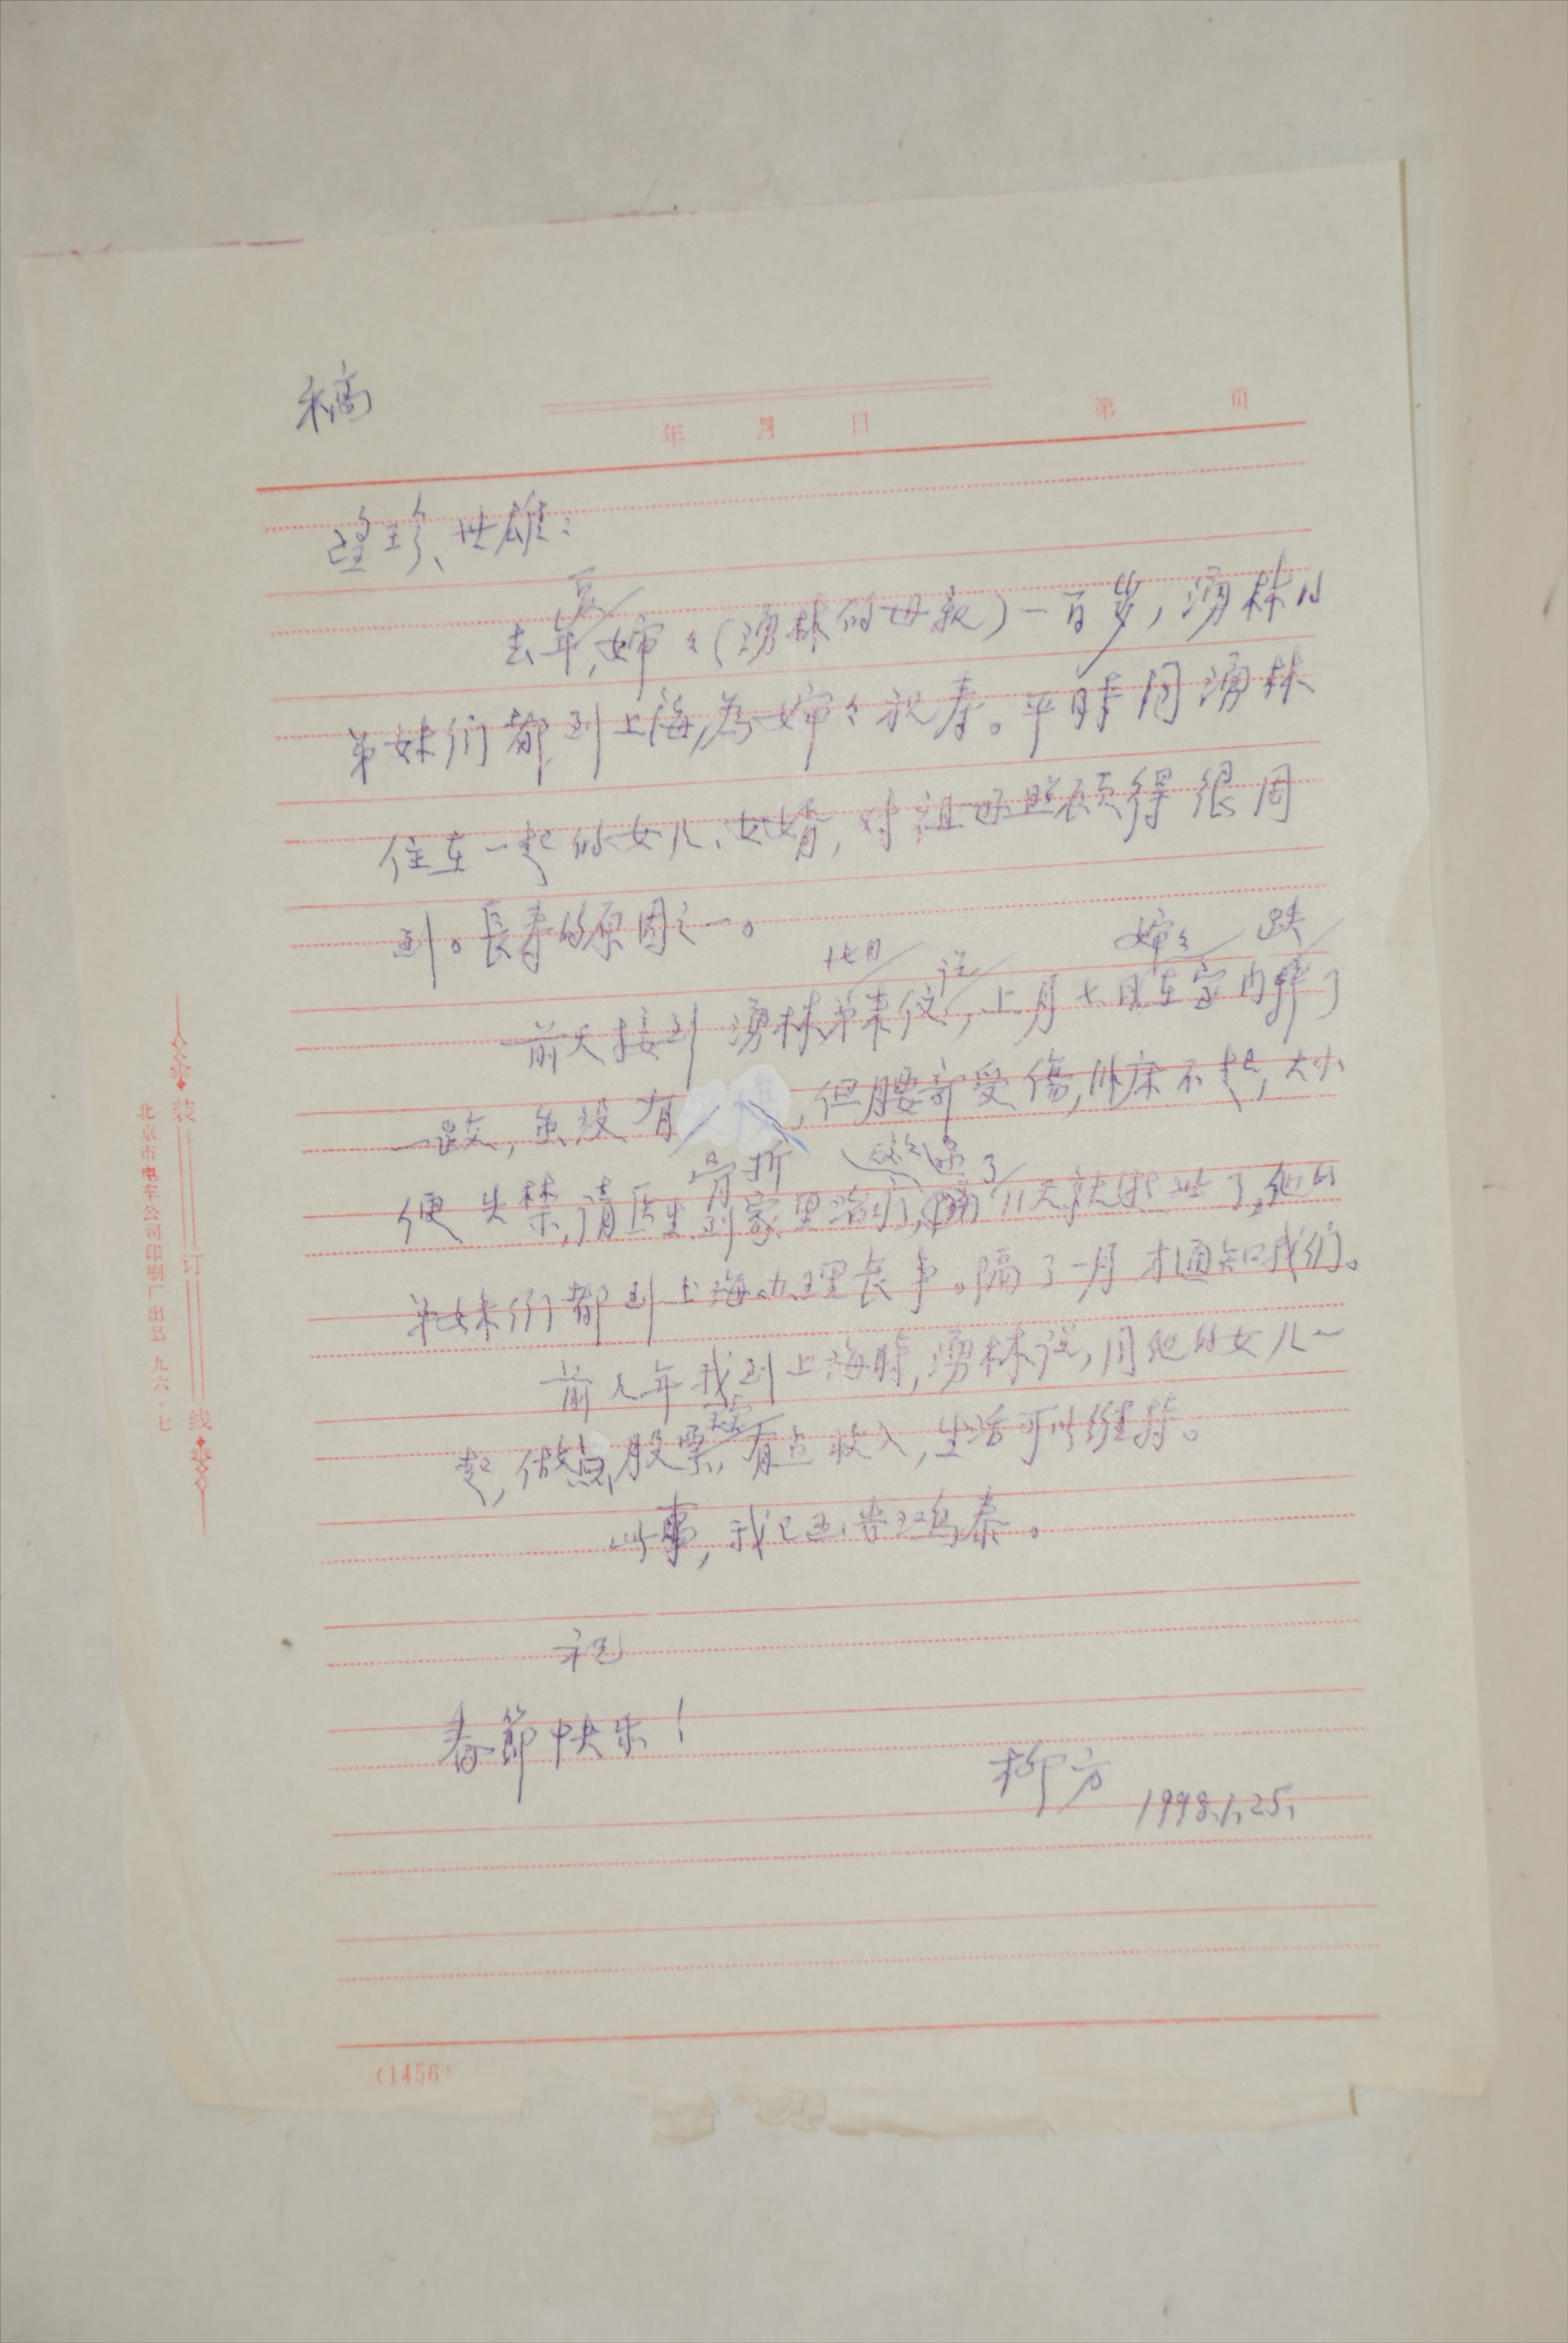 稿
年 月 日 第 页
珍、世雄:
夏
去年,婶々(湧林的母親)一百岁,湧林的
弟妹们都到上海,為婶々祝寿。平時同湧林
住在一起的女儿、女婿,对祖母照顾得很周
到。長寿的原因之一。
说 婶々 跌
前天接到湧林弟来信,上月七日在家内了
一跤,虽没有,但腰部受傷,卧床不起,大小
骨折
便失禁,请医生到家里治疗,11天就逝世了,他的
弟妹们都到上海办理丧事。隔了一月才通知我们。
前几年我到上海時,湧林说,同他的女儿一
起,做点股票,有点收入,生活可以维持。
此事,我已告鸿泰。
祝
春節快乐!
柳方 1998.1.25.
装 订 线
北京市电车公司印刷厂出品 九六·七
(1456)